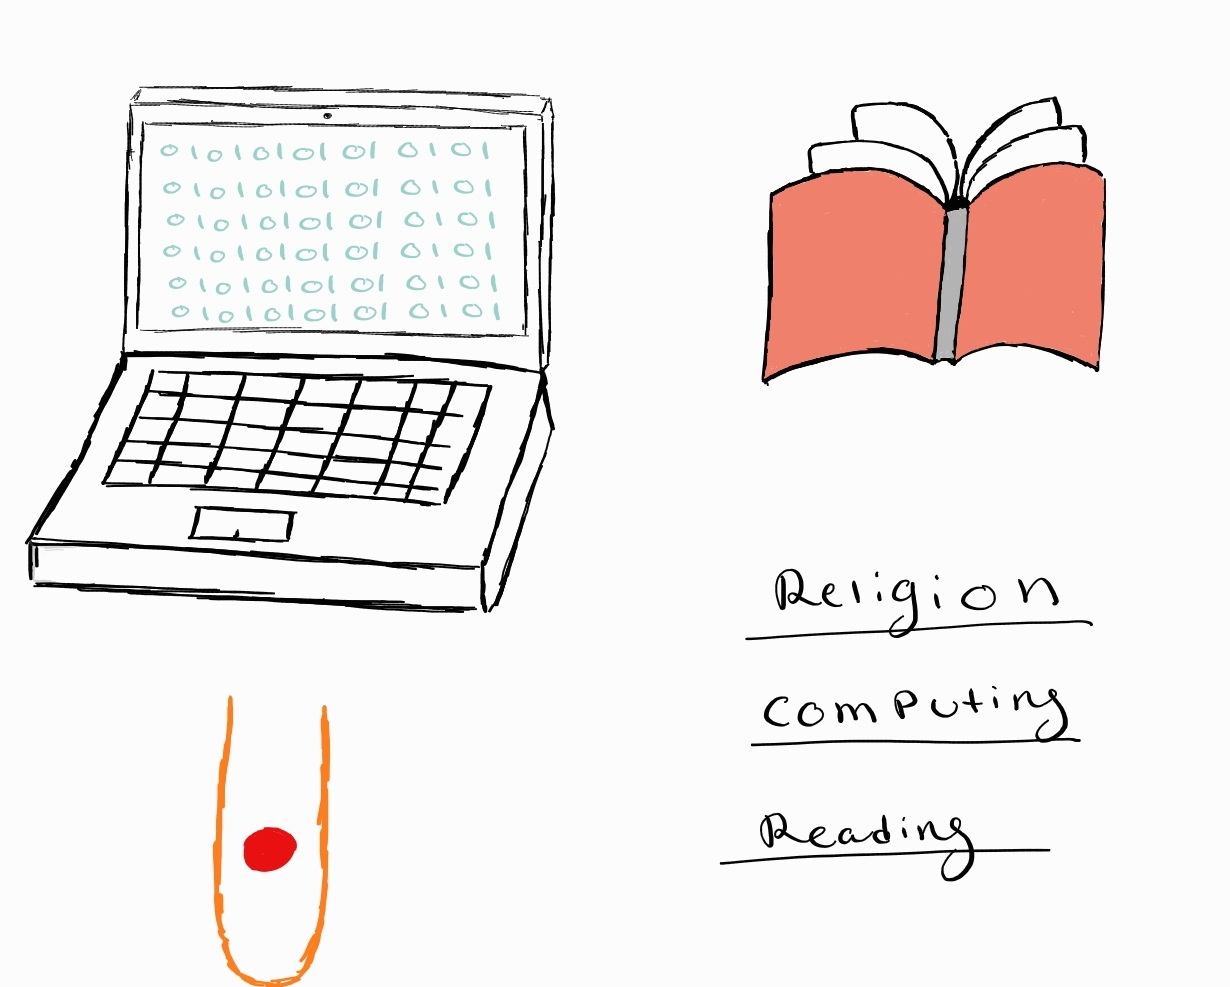 0 1 0 1 0 1 0 1 0 1 0 1 0 1
0 1 0 1 0 1 0 1 0 1 0 1 0 1
0 1 0 1 0 1 0 1 0 1 0 1 0 1
0 1 0 1 0 1 0 1 0 1 0 1 0 1
0 1 0 1 0 1 0 1 0 1 0 1 0 1
0 1 0 1 0 1 0 1 0 1 0 1 0 1
Religion
Computing
Reading